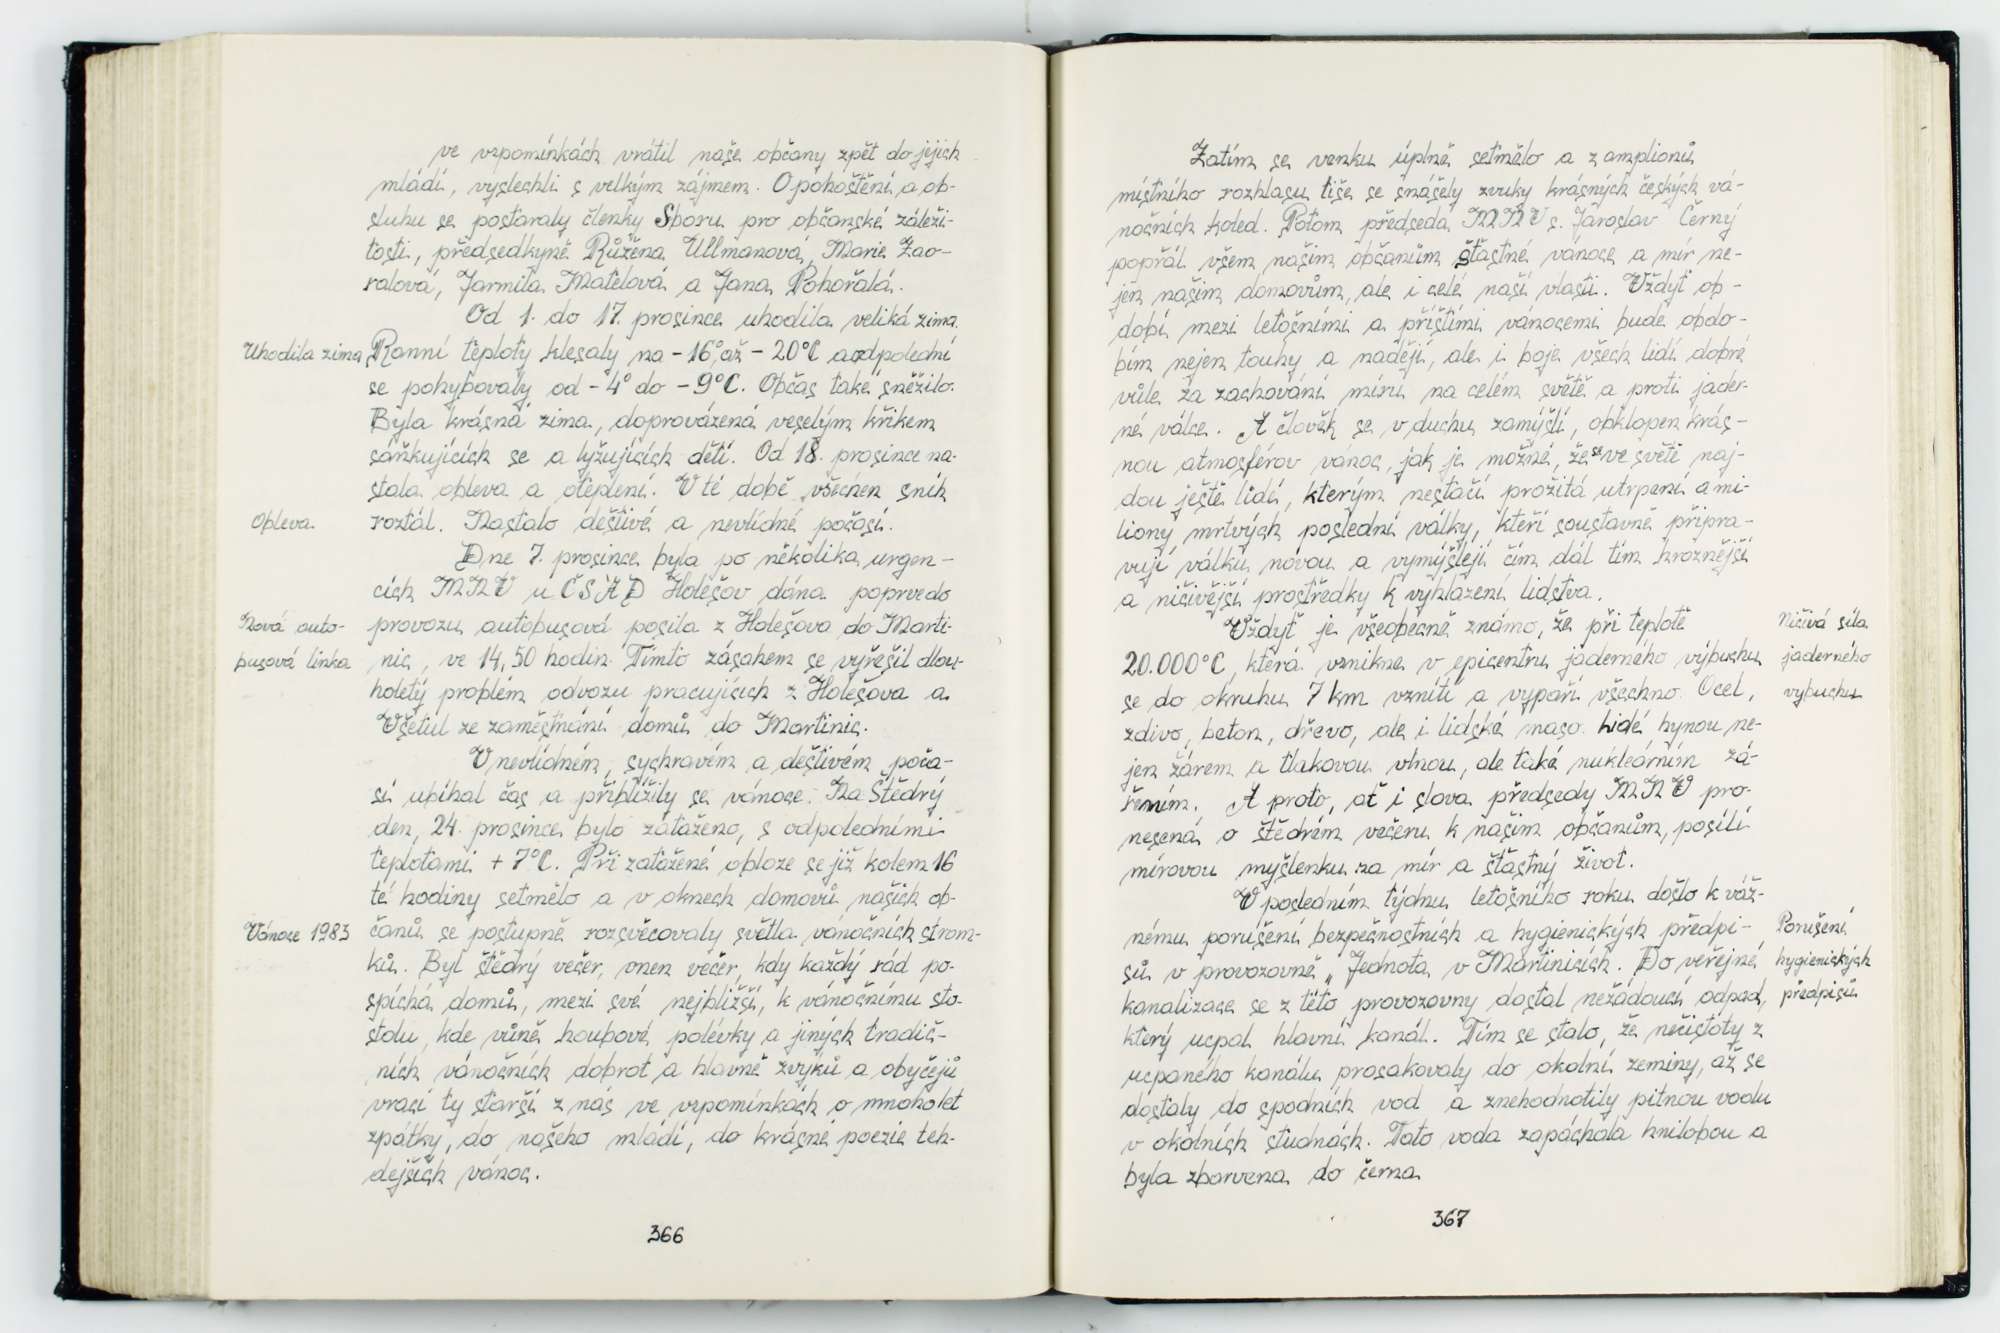 ve vzpomínkách vrátil naše občany zpět do jejich
mládí, vyslechli s velkým zájmem. O pohoštění a ob-
sluhu se postaraly členky Sboru pro občanské záleži-
tosti, předsedkyně Růžena Ullmanová, Marie Zao-
ralová, Jarmila Matelová a Jana Pohořalá.
Od 1. do 17. prosince uhodila veliká zima.
Uhodila zima
Ranní teploty klesaly na -16° až -20°C a odpolední
se pohybovaly od -4° do -9°C. Občas také sněžilo.
Byla krásná zima, doprovázená veselým křikem
sáňkujících se a lyžujících dětí. Od 18. prosince na-
stala obleva a oteplení. V té době všechen sníh
Obleva.
roztál. Nastalo deštivé a nevlídné počasí.
Dne 7. prosince byla po několika urgen-
cích MNV u ČSAD Holešov dána poprve do
Nová auto-
provozu autobusová posila z Holešova do Marti-
busová linka
nic, ve 14,50 hodin. Tímto zásahem se vyřešil dlou-
holetý problém odvozu pracujících z Holešova a
Všetul ze zaměstnání domů do Martinic.
V nevlídném, sychravém a deštivém poča-
sí ubíhal čas a přiblížily se vánoce. Na Štědrý
den, 24. prosince bylo zataženo, s odpoledními
teplotami +7°C. Při zatažené obloze se již kolem 16
té hodiny setmělo a v oknech domovů našich ob-
Vánoce 1983
čanů se postupně rozsvěcovaly světla vánočních strom-
ků. Byl štědrý večer, onen večer, kdy každý rád po-
spíchá domů, mezi své nejbližší, k vánočnímu sto-
stolu, kde vůně houbové polévky a jiných tradič-
ních vánočních dobrot a hlavně zvyků a obyčejů
vrací ty starší z nás ve vzpomínkách o mnoho let
zpátky, do našeho mládí, do krásné poezie teh-
dejších vánoc.
366
Zatím se venku úplně setmělo a z amplionů
místního rozhlasu tiše se snášely zvuky krásných českých vá-
nočních koled. Potom předseda MNV s. Jaroslav Černý
popřál všem našim občanům šťastné vánoce a mír ne-
jen našim domovům, ale i celé naší vlasti. Vždyť ob-
dobí mezi letošními a příštími vánocemi bude obdo-
bím nejen touhy a nadějí, ale i boje všech lidí dobré
vůle za zachování míru na celém světě a proti jader-
né válce. A člověk se v duchu zamýšlí, obklopen krás-
nou atmosférou vánoc, jak je možné, že se ve světě naj-
dou ještě lidé, kterým nestačí prožitá utrpení a mi-
liony mrtvých poslední války, kteří soustavně připra-
vují válku novou a vymýšlejí čím dál tím hroznější
a ničivější prostředky k vyhlazení lidstva.
Vždyť je všeobecně známo, že při teplotě
Ničivá síla
20.000°C, která vznikne v epicentru jaderného výbuchu
jaderného
se do okruhu 7 km vznítí a vypaří všechno. Ocel,
vybuchu
zdivo, beton, dřevo, ale i lidské maso. Lidé hynou ne-
jen žárem a tlakovou vlnou, ale také nukleárním zá-
řením. A proto, ať i slova předsedy MNV pro-
nesená o štědrém večeru k našim občanům, posílí
mírovou myšlenku za mír a šťastný život.
V posledním týdnu letošního roku došlo k váž-
Porušení
nému porušení bezpečnostních a hygienických předpi-
hygienických
sů v provozovně „Jednota v Martinicích. Do veřejné
předpisů
kanalizace se z této provozovny dostal nežádoucí odpad,
který ucpal hlavní kanál. Tím se stalo, že nečistoty z
ucpaného kanálu prosakovaly do okolní zeminy, až se
dostaly do spodních vod a znehodnotily pitnou vodu
v okolních studnách. Tato voda zapáchala hnilobou a
byla zbarvena do černa
367